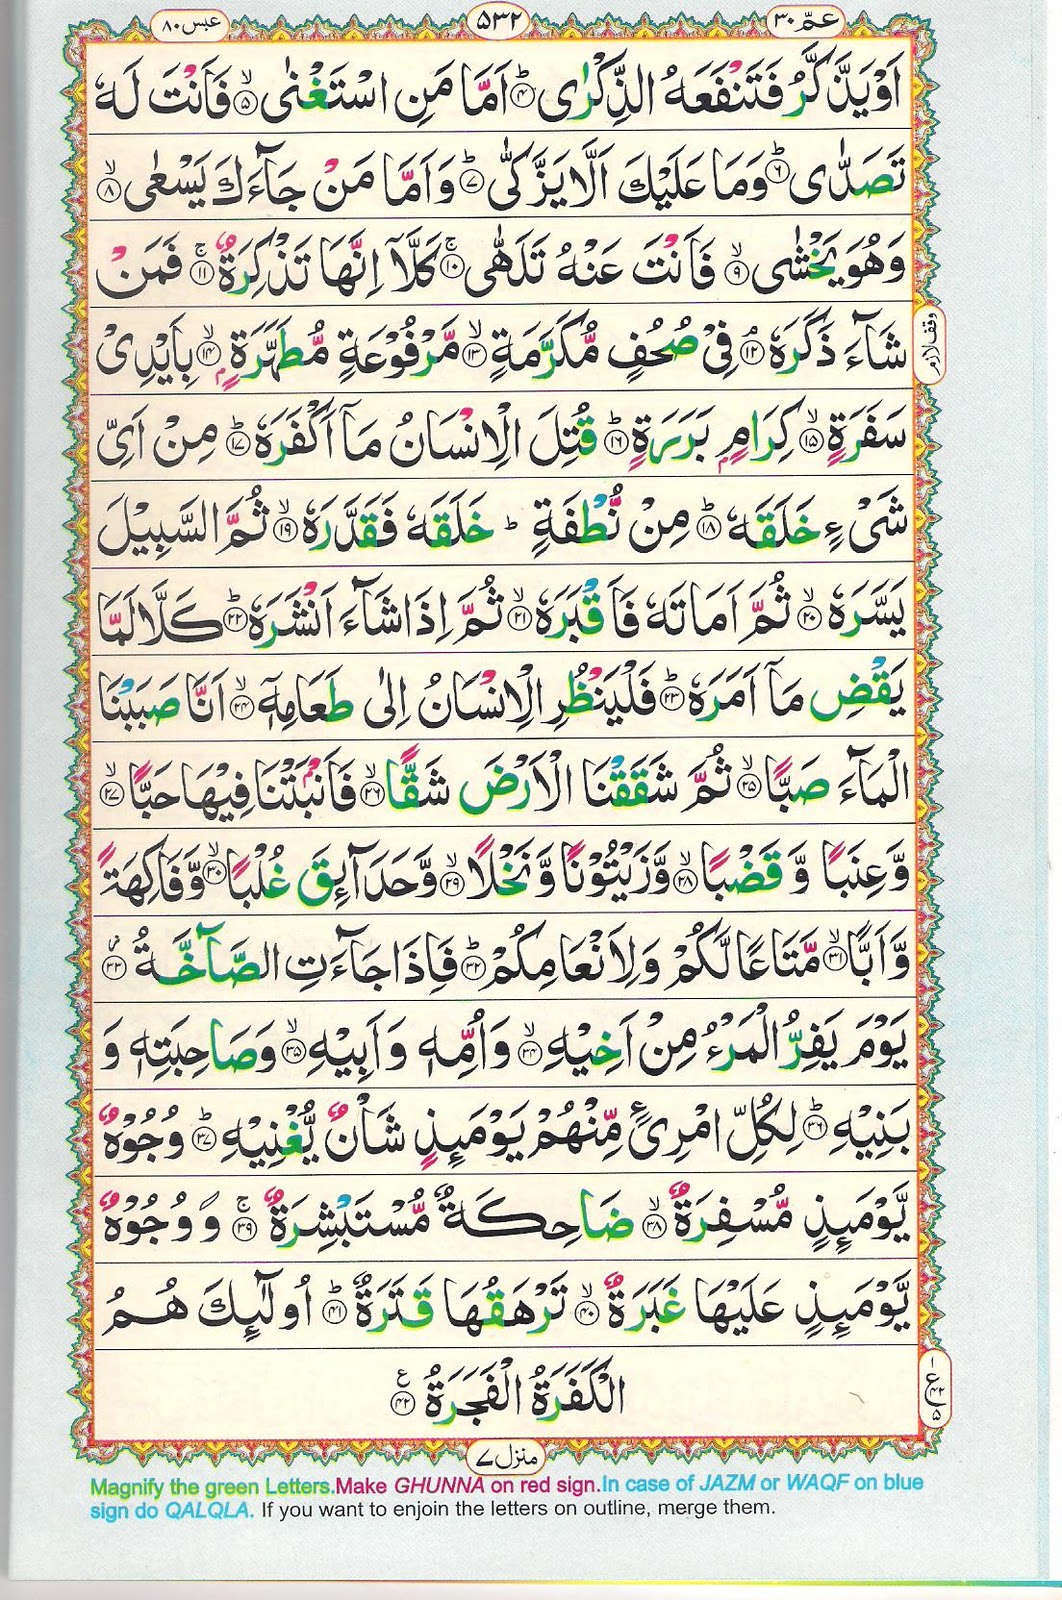 عمّ ۳۰
۵۳۲
عبس ۸۰
اَوْ يَذَّكَّرُ فَتَنْفَعَهُ الذِّكْرٰى ؕ﴿۴﴾ اَمَّا مَنِ اسْتَغْنٰى ۙ﴿۵﴾ فَاَنْتَ لَهٗ
تَصَدّٰى ؕ﴿۶﴾ وَمَا عَلَيْكَ اَلَّا يَزَّكّٰى ؕ﴿۷﴾ وَاَمَّا مَنْ جَآءَكَ يَسْعٰى ۙ﴿۸﴾
وَهُوَ يَخْشٰى ۙ﴿۹﴾ فَاَنْتَ عَنْهُ تَلَهّٰى ۚ﴿۱۰﴾ كَلَّاۤ اِنَّهَا تَذْكِرَةٌ ۚ﴿۱۱﴾ فَمَنْ
شَآءَ ذَكَرَهٗ ۘ﴿۱۲﴾ فِىْ صُحُفٍ مُّكَرَّمَةٍ ۙ﴿۱۳﴾ مَّرْفُوْعَةٍ مُّطَهَّرَةٍۭ ۙ﴿۱۴﴾ بِاَيْدِىْ
وقف لازم
سَفَرَةٍ ۙ﴿۱۵﴾ كِرَامٍۭ بَرَرَةٍ ؕ﴿۱۶﴾ قُتِلَ الْاِنْسَانُ مَاۤ اَكْفَرَهٗ ؕ﴿۱۷﴾ مِنْ اَىِّ
شَىْءٍ خَلَقَهٗ ؕ﴿۱۸﴾ مِنْ نُّطْفَةٍ ؕ خَلَقَهٗ فَقَدَّرَهٗ ۙ﴿۱۹﴾ ثُمَّ السَّبِيْلَ
يَسَّرَهٗ ۙ﴿۲۰﴾ ثُمَّ اَمَاتَهٗ فَاَقْبَرَهٗ ۙ﴿۲۱﴾ ثُمَّ اِذَا شَآءَ اَنْشَرَهٗ ؕ﴿۲۲﴾ كَلَّا لَمَّا
يَقْضِ مَاۤ اَمَرَهٗ ؕ﴿۲۳﴾ فَلْيَنْظُرِ الْاِنْسَانُ اِلٰى طَعَامِهٖۤ ۙ﴿۲۴﴾ اَنَّا صَبَبْنَا
الْمَآءَ صَبًّا ۙ﴿۲۵﴾ ثُمَّ شَقَقْنَا الْاَرْضَ شَقًّا ۙ﴿۲۶﴾ فَاَنْۢبَتْنَا فِيْهَا حَبًّا ۙ﴿۲۷﴾
وَّعِنَبًا وَّقَضْبًا ۙ﴿۲۸﴾ وَّزَيْتُوْنًا وَّنَخْلًا ۙ﴿۲۹﴾ وَّحَدَآئِقَ غُلْبًا ۙ﴿۳۰﴾ وَّفَاكِهَةً
وَّاَبًّا ۙ﴿۳۱﴾ مَّتَاعًا لَّكُمْ وَلِاَنْعَامِكُمْ ؕ﴿۳۲﴾ فَاِذَا جَآءَتِ الصَّآخَّةُ ؗ﴿۳۳﴾
يَوْمَ يَفِرُّ الْمَرْءُ مِنْ اَخِيْهِ ۙ﴿۳۴﴾ وَاُمِّهٖ وَاَبِيْهِ ۙ﴿۳۵﴾ وَصَاحِبَتِهٖ وَ
بَنِيْهِ ؕ﴿۳۶﴾ لِكُلِّ امْرِئٍ مِّنْهُمْ يَوْمَئِذٍ شَاْنٌ يُّغْنِيْهِ ؕ﴿۳۷﴾ وُجُوْهٌ
يَّوْمَئِذٍ مُّسْفِرَةٌ ۙ﴿۳۸﴾ ضَاحِكَةٌ مُّسْتَبْشِرَةٌ ۚ﴿۳۹﴾ وَوُجُوْهٌ
يَّوْمَئِذٍ عَلَيْهَا غَبَرَةٌ ۙ﴿۴۰﴾ تَرْهَقُهَا قَتَرَةٌ ؕ﴿۴۱﴾ اُولٰٓئِكَ هُمُ
الْكَفَرَةُ الْفَجَرَةُ ﴿۴۲﴾ ع
۱ ع ۴۲ ۵
منزل ۷
Magnify the green Letters.Make GHUNNA on red sign.In case of JAZM or WAQF on blue
sign do QALQLA. If you want to enjoin the letters on outline, merge them.